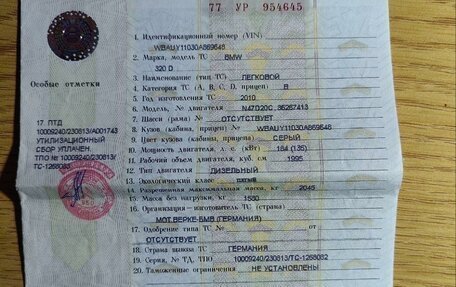 77 УР 954645
1. Идентификационный номер (VIN)
WBAUY11030A869646
2. Марка, модель ТС BMW
320 D
3. Наименование (тип ТС) ЛЕГКОВОЙ
Особые отметки
4. Категория ТС (А, В, С, D, прицеп) В
5. Год изготовления ТС 2010
6. Модель, № двигателя N47D20C, 36267413
7. Шасси (рама) № ОТСУТСТВУЕТ
8. Кузов (кабина, прицеп) № WBAUY11030A869646
9. Цвет кузова (кабины, прицепа) СЕРЫЙ
10. Мощность двигателя, л. с. (кВт) 184 (135)
11. Рабочий объем двигателя, куб. см 1995
12. Тип двигателя ДИЗЕЛЬНЫЙ
13. Экологический класс ПЯТЫЙ
14. Разрешенная максимальная масса, кг 2045
15. Масса без нагрузки, кг 1550
16. Организация—изготовитель ТС (страна)
МОТ.ВЕРКЕ-БМВ (ГЕРМАНИЯ)
17. Одобрение типа ТС №
ОТСУТСТВУЕТ
18. Страна вывоза ТС ГЕРМАНИЯ
19. Серия, № ТД, ТПО 10009240/230813/ТС-1268082
20. Таможенные ограничения НЕ УСТАНОВЛЕНЫ
17 ПТД
10009240/230813/А001743
УТИЛИЗАЦИОННЫЙ
СБОР УПЛАЧЕН.
ТПО № 10009240/230813/